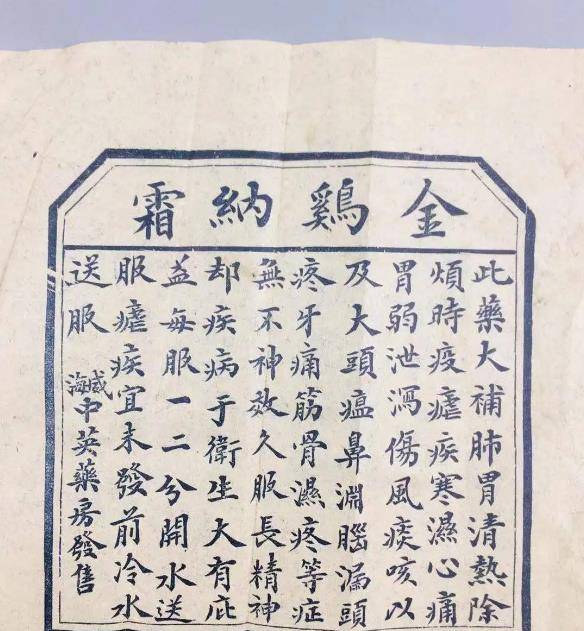 金鷄納霜
此藥大補肺胃清熱除
煩時疫瘧疾寒濕心痛
胃弱泄瀉傷風痰咳以
及大頭瘟鼻淵腦漏頭
疼牙痛筋骨濕疼等症
無不神效久服長精神
却疾病于衛生大有庇
益每服一二分開水送
服瘧疾宜未發前冷水
送服
威海中英藥房發售